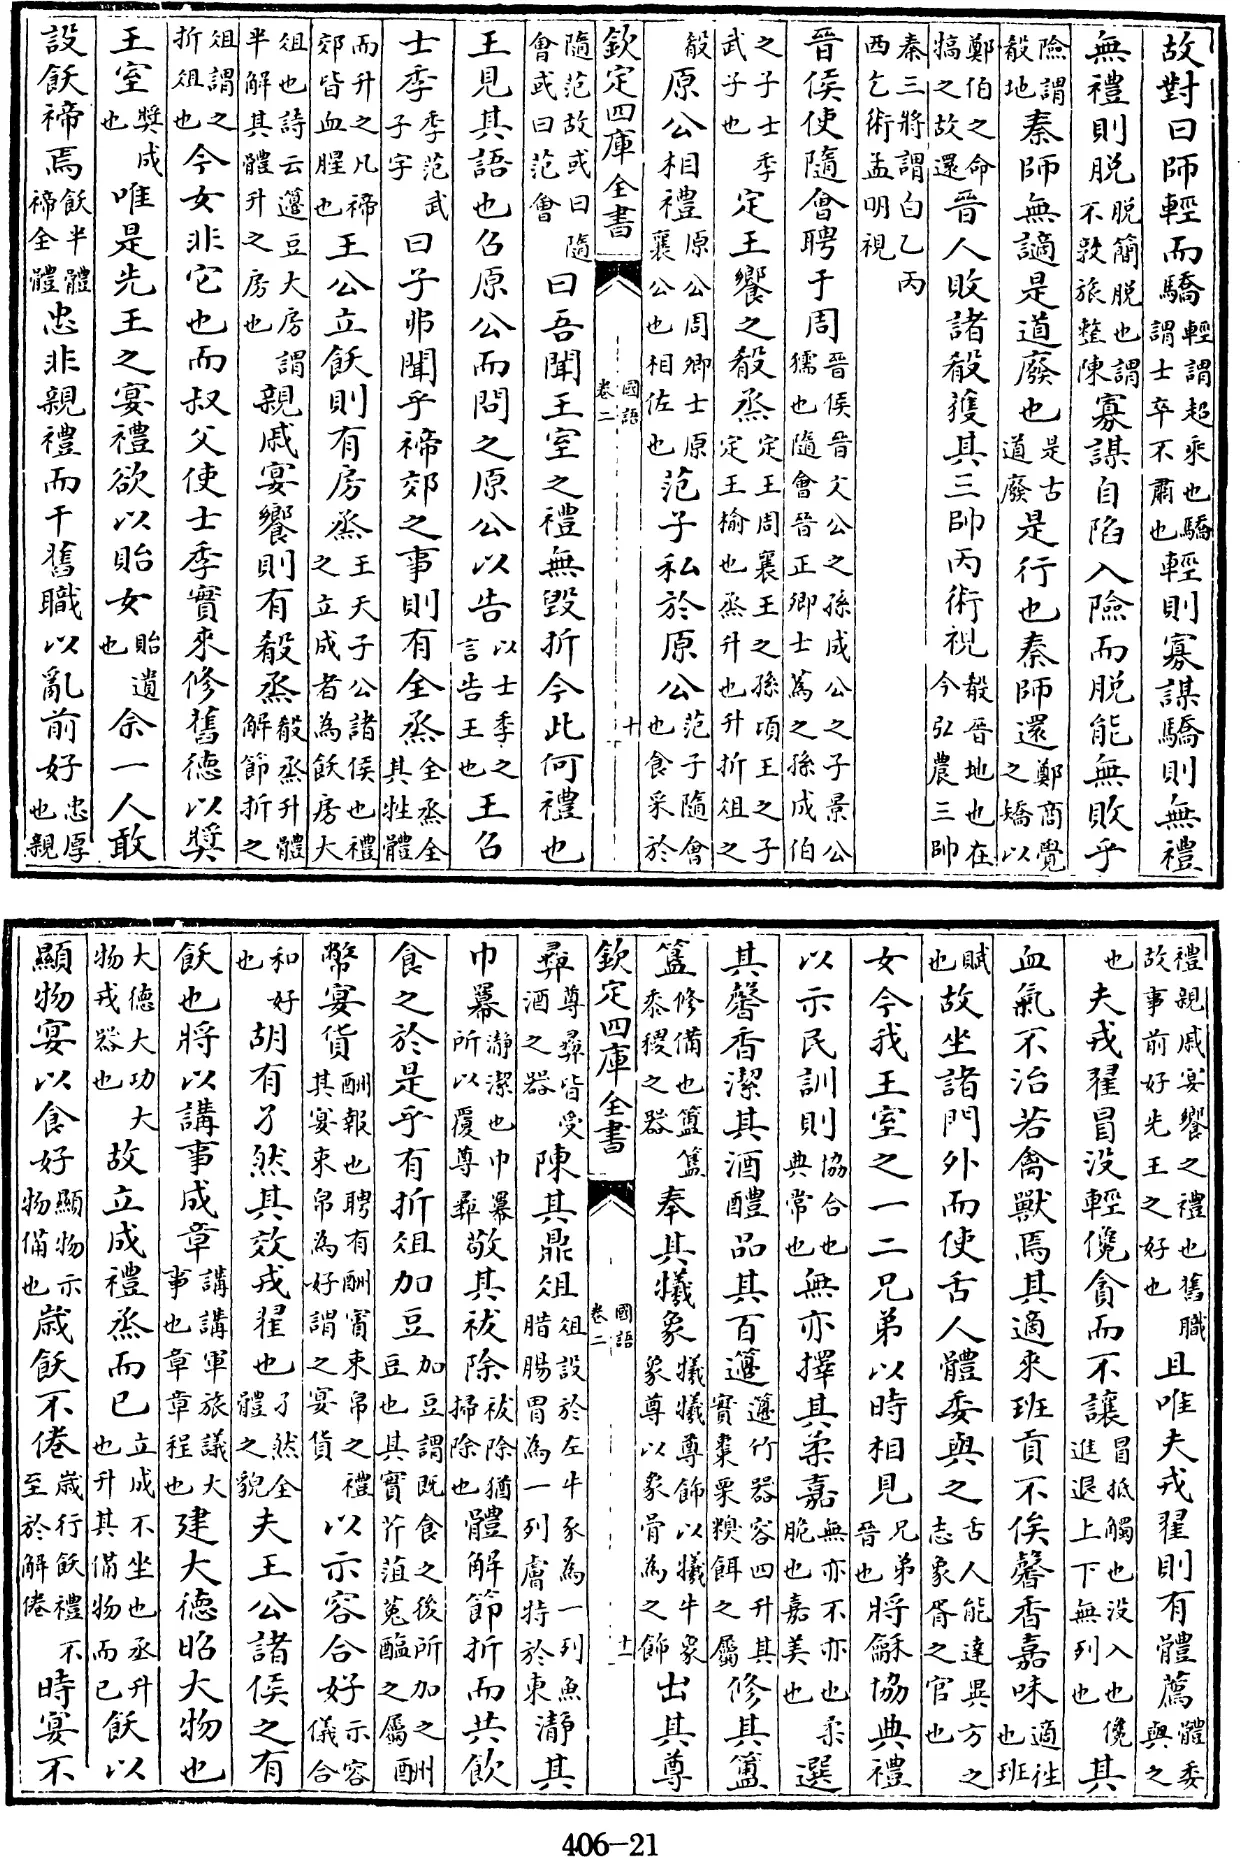 故對曰師輕而驕輕謂超乘也驕謂士卒不肅也輕則寡謀驕則無禮
無禮則脫脫簡脫也謂不敦旅整陳寡謀自陷入險而脫能無敗乎
險謂殽地秦師無謫是道廢也是古道廢是行也秦師還鄭商覺之矯以
鄭伯之命犒之故還晉人敗諸殽獲其三帥丙術視殽晉地也在今弘農三帥
秦三將謂白乙丙西乞術孟明視
晉侯使隨會聘于周晉侯晉文公之孫成公之子景公獳也隨會晉正卿士蔿之孫成伯
之子士季武子也定王饗之殽烝定王周襄王之孫頃王之子定王榆也烝升也升折俎之
殽原公相禮原公周卿士原襄公也相佐也范子私於原公范子隨會也食采於
欽定四庫全書 國語卷二 十
隨范故或曰隨會或曰范會曰吾聞王室之禮無毀折今此何禮也
王見其語也召原公而問之原公以告以士季之言告王也王召
士季季范武子字曰子弗聞乎禘郊之事則有全烝全烝全其牲體
而升之凡禘郊皆血腥也王公立飫則有房烝王天子公諸侯也禮之立成者為飫房大
俎也詩云籩豆大房謂半解其體升之房也親戚宴饗則有殽烝殽烝升體解節折之
俎謂之折俎也今女非它也而叔父使士季實來修舊德以獎
王室獎成也唯是先王之宴禮欲以貽女貽遺也余一人敢
設飫禘焉飫半體禘全體忠非親禮而干舊職以亂前好忠厚也親
禮親戚宴饗之禮也舊職故事前好先王之好也且唯夫戎翟則有體薦體委與之
也夫戎翟冒沒輕儳貪而不讓冒抵觸也沒入也儳進退上下無列也其
血氣不治若禽獸焉其適來班貢不俟馨香嘉味適往也班
賦也故坐諸門外而使舌人體委與之舌人能達異方之志象胥之官也
女今我王室之一二兄弟以時相見兄弟晉也將龢協典禮
以示民訓則協合也典常也無亦擇其柔嘉無亦不亦也柔脆也嘉美也選
其馨香潔其酒醴品其百籩籩竹器容四升其實棗栗糗餌之屬修其簠
簋修備也簠簋黍稷之器奉其犧象犧犧尊飾以犧牛象象尊以象骨為之飾出其尊
欽定四庫全書 國語卷二 十一
彞尊彞皆受酒之器陳其鼎俎俎設於左牛豕為一列魚腊腸胃為一列膚特於東瀞其
巾冪瀞潔也巾冪所以覆尊彞敬其祓除祓除猶掃除也體解節折而共飲
食之於是乎有折俎加豆加豆謂既食之後所加之豆也其實芹菹兔醢之屬酬
幣宴貨酬報也聘有酬賓束帛之禮其宴束帛為好謂之宴貨以示容合好示容儀合
和好也胡有孑然其效戎翟也孑然全體之貌夫王公諸侯之有
飫也將以講事成章講講軍旅議大事也章章程也建大德昭大物也
大德大功大物戎器也故立成禮烝而已立成不坐也烝升也升其備物而已飫以
顯物宴以食好顯物示物備也歲飫不倦歲行飫禮不至於解倦時宴不
406-21